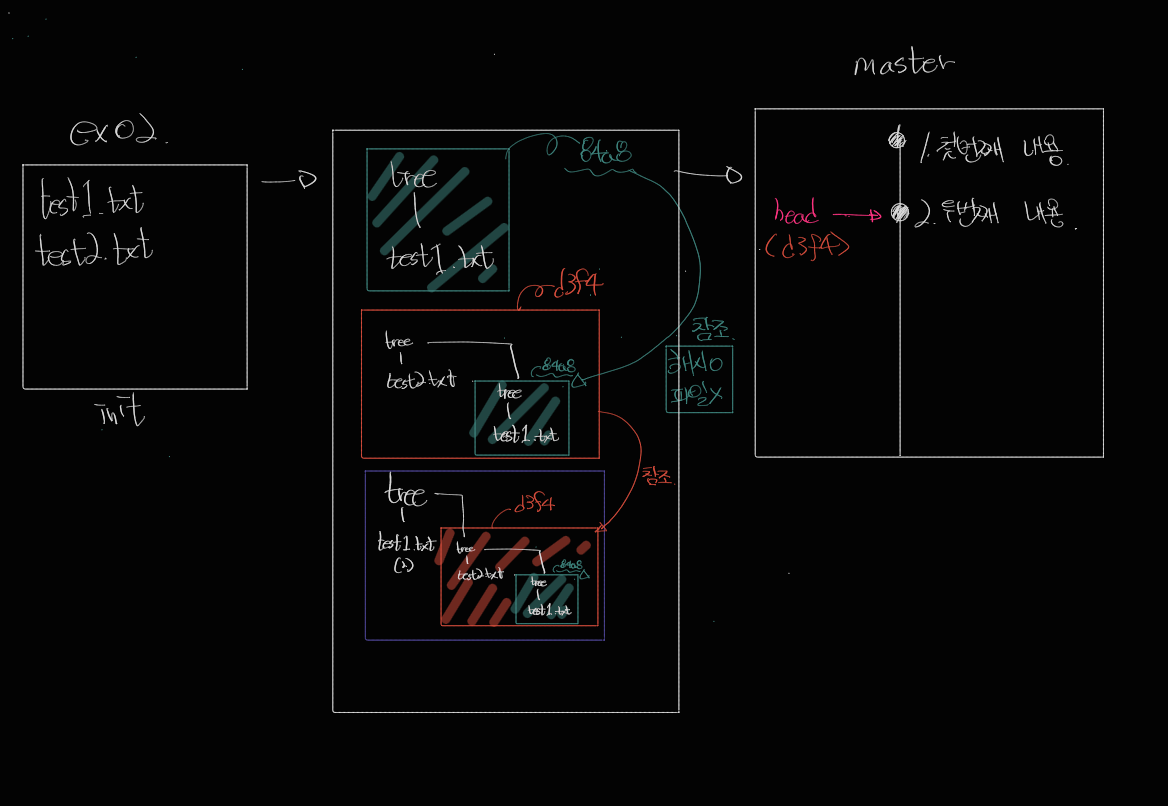 ex02.
test1.txt
test2.txt
init
84a8
tree
test1.txt
d3f4
tree
test2.txt
84a8
tree
test1.txt
참조
해시O
파일X
참조
tree
test1.txt
(2)
d3f4
tree
test2.txt
84a8
tree
test1.txt
master
1. 첫번째 내용.
head
(d3f4)
2. 두번째 내용.